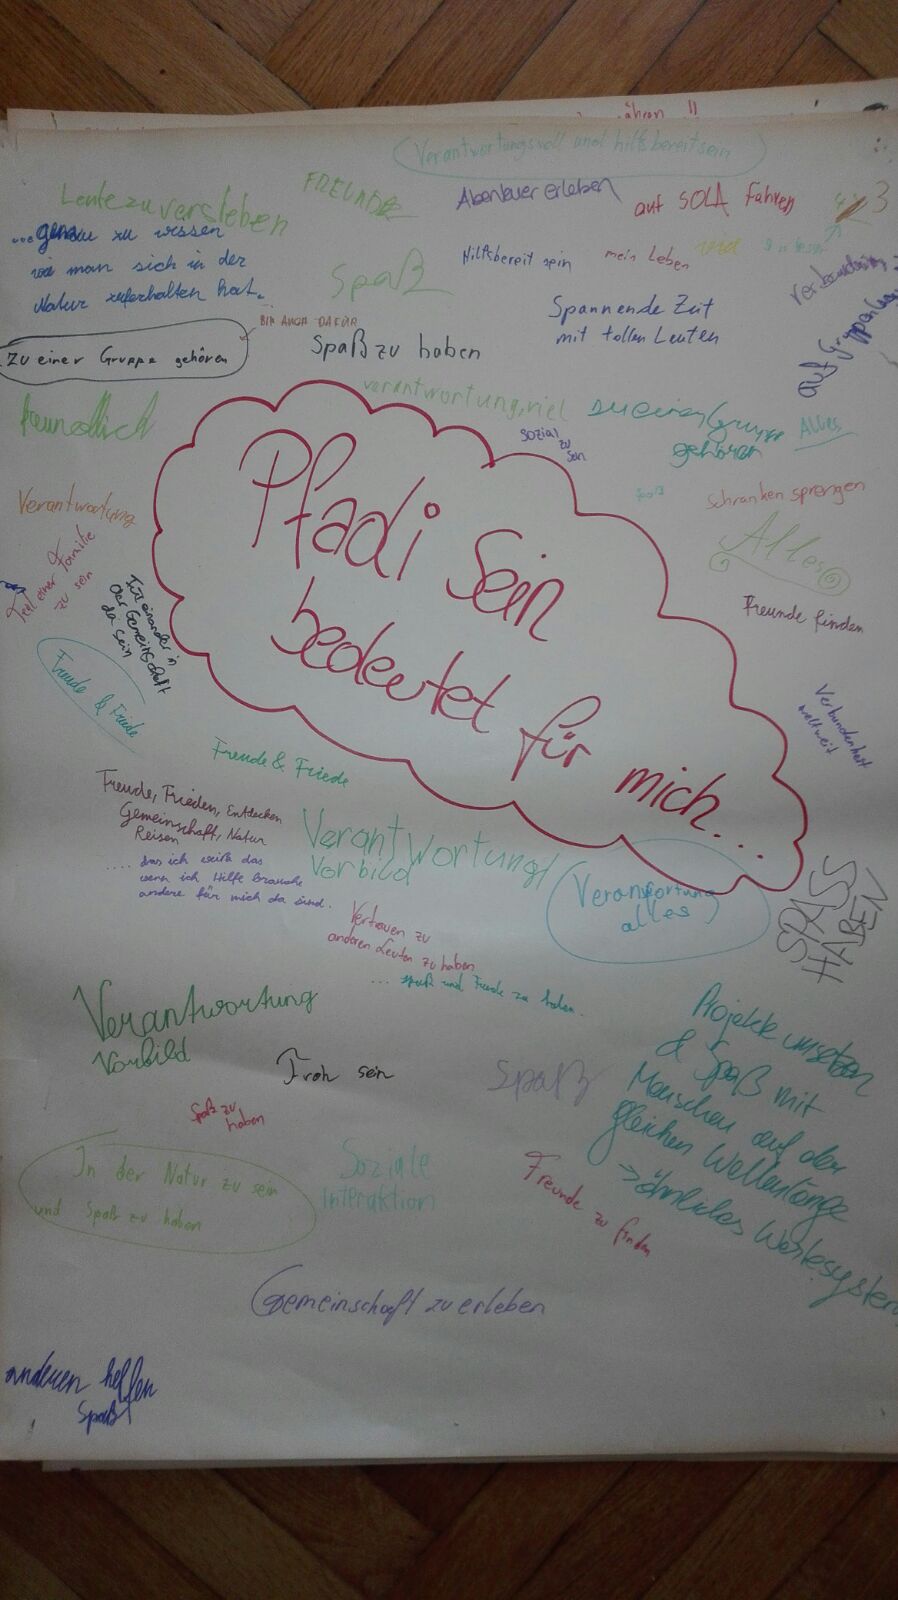 Verantwortungsvoll und hilfsbereit sein
Leute zu
FREUNDE
Abenteuer erleben
auf SOLA fahren
3
...genau zu wissen
wie man sich in der
Natur
hat.
Spaß
Hilfsbereit sein
mein Leben
viel
Spannende Zeit
mit tollen Leuten
BIN AUCH DAFÜR
Zu einer Gruppe gehören
Spaß zu haben
freundlich
verantwortung, viel
sozial
zu
sein
zu einer Gruppe
gehören
Alles
Spaß
Schranken sprengen
Alles
Freunde finden
Verantwortung
Teil einer Familie
zu sein
Für einander in
der Gemeinschaft
da sein
Freude & Friede
Pfadi Sein
bedeutet für
mich...
Verbundenheit
weltweit
Freude & Friede
Freude, Frieden, Entdecken
Gemeinschaft, Natur
Reisen
.... das ich weiß das
wenn ich Hilfe brauche
andere für mich da sind.
Verantwortung/
Vorbild
Verantwortung
alles
SPASS
HABEN
Vertrauen zu
anderen Leuten zu haben
... spaß und Freude zu haben.
Verantwortung
Vorbild
Froh sein
Spaß
Projekte umsetzen
& Spaß mit
Menschen auf der
gleichen Wellenlänge
->ähnliches Wertesystem
Spaß zu
haben
In der Natur zu sein
und Spaß zu haben
Soziale
Interaktion
Freunde zu finden
Gemeinschaft zu erleben
anderen helfen
Spaß